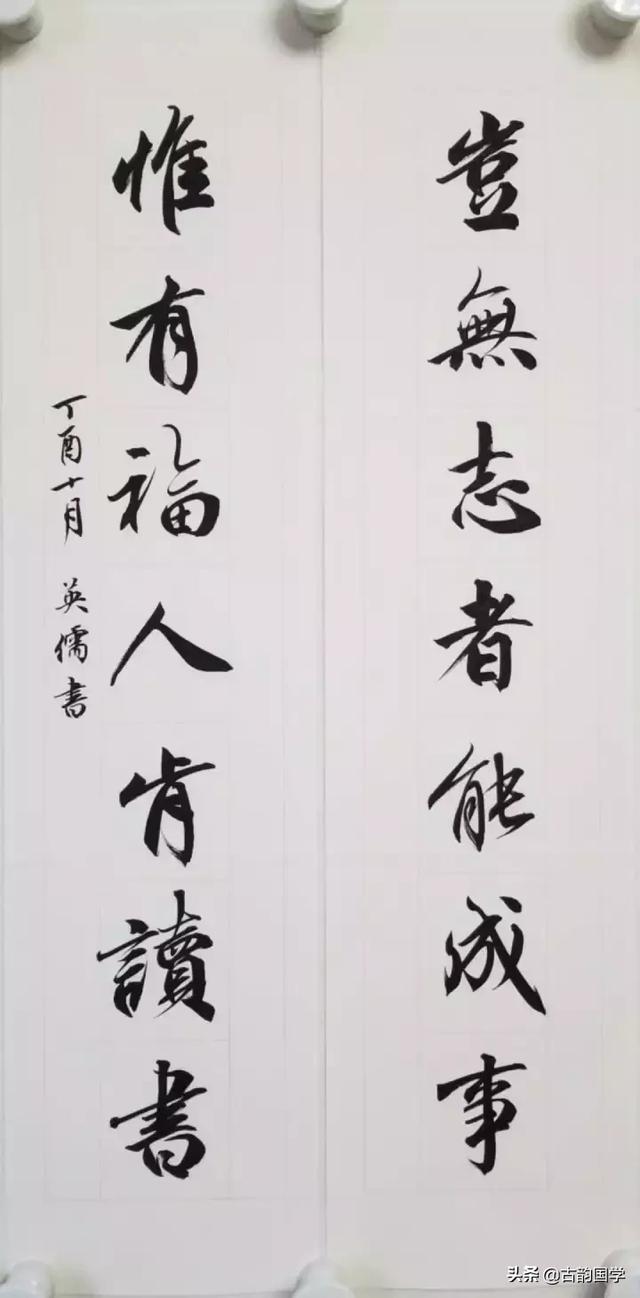 豈無志者能成事
惟有福人肯讀書
丁酉十月 英儒書
头条 @古韵国学